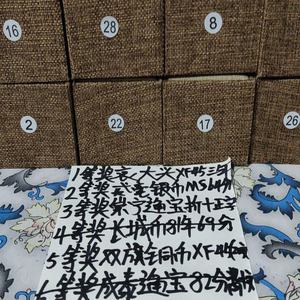 16
28
8
2
22
17
26
1等奖袁大头XF45三年
2等奖 银币MS
3等奖崇宁通宝折十
4等奖长城币81年69分
5等奖双旗铜币XF
6等奖咸丰通宝82分